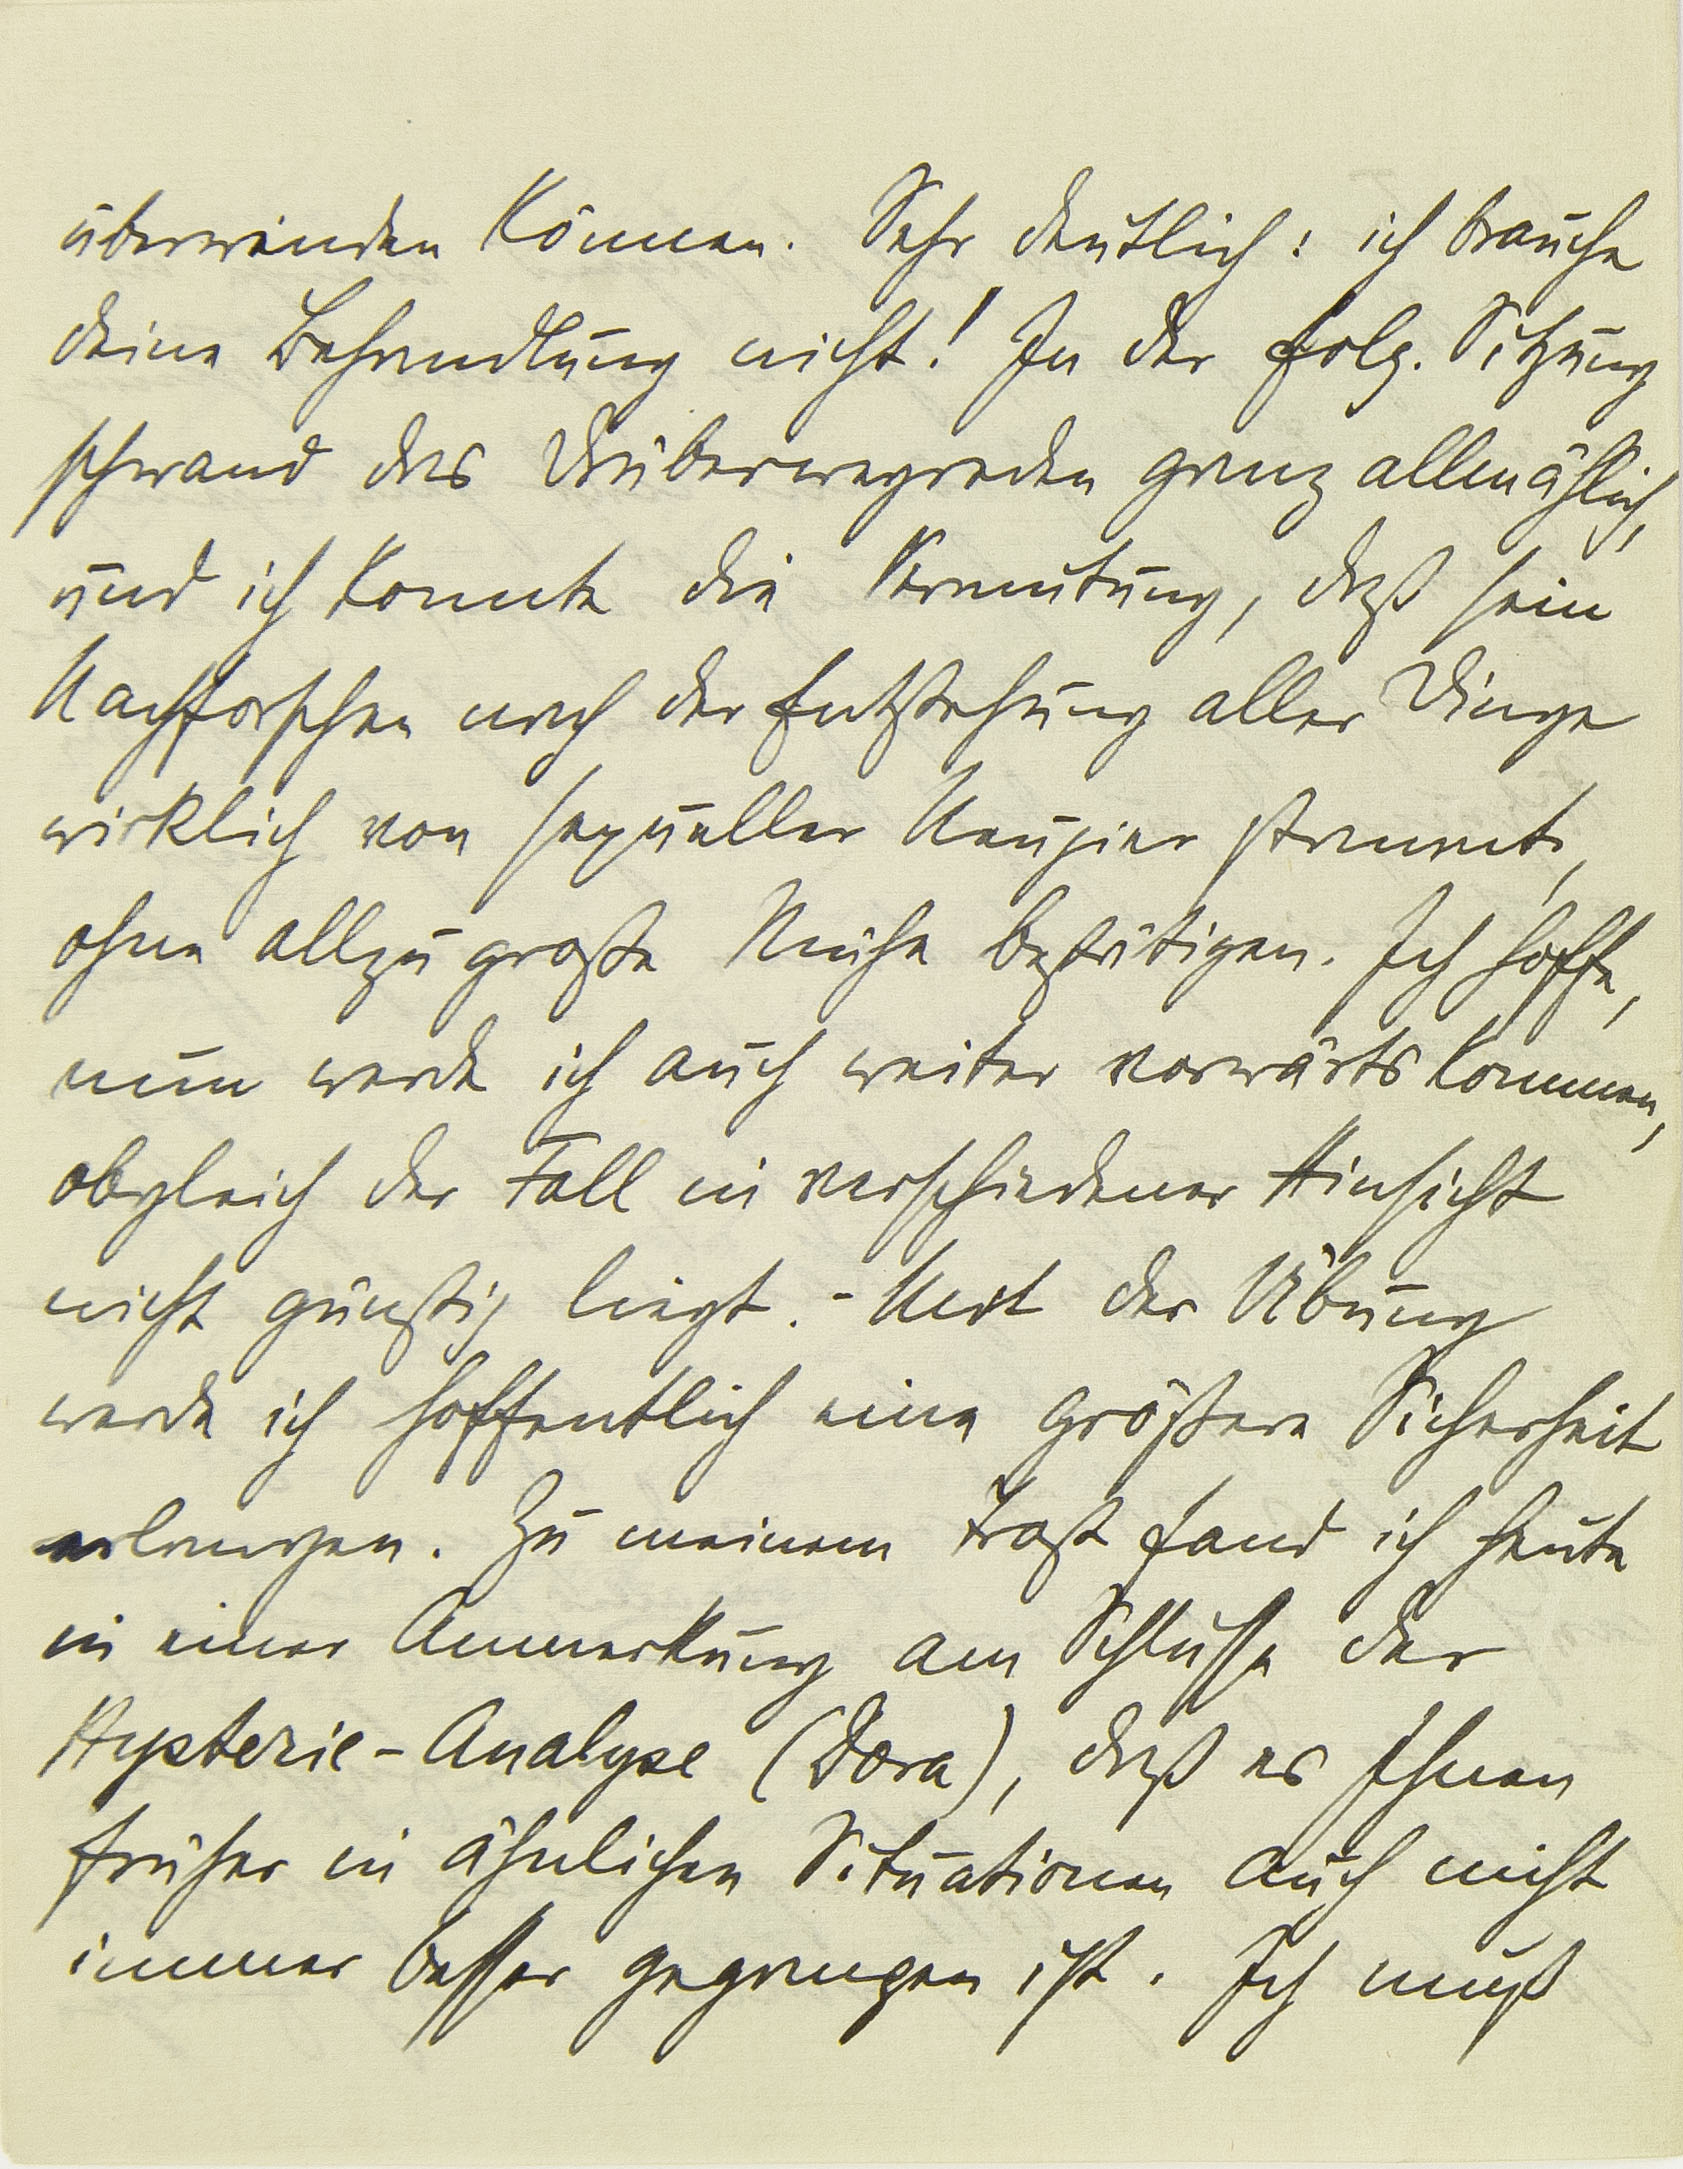 überwinden können. Sehr deutlich: ich brauche
deine Behandlung nicht! In der folg. Sitzung
schwand das Drüberwegreden ganz allmählich,
und ich konnte die Vermutung, daß sein
Nachforschen nach der Entstehung aller Dinge
wirklich von sexueller Neugier stammt,
ohne allzu große Mühe bestätigen. Ich hoffe,
nun werde ich auch weiter vorwärts kommen,
obgleich der Fall in verschiedener Hinsicht
nicht günstig liegt. – Mit der Übung
werde ich hoffentlich eine größere Sicherheit
erlangen. Zu meinem Trost fand ich heute
in einer Anmerkung am Schlusse der
Hysterie-Analyse (Dora), daß es Ihnen
früher in ähnlichen Situationen auch nicht
immer besser gegangen ist. Ich muß